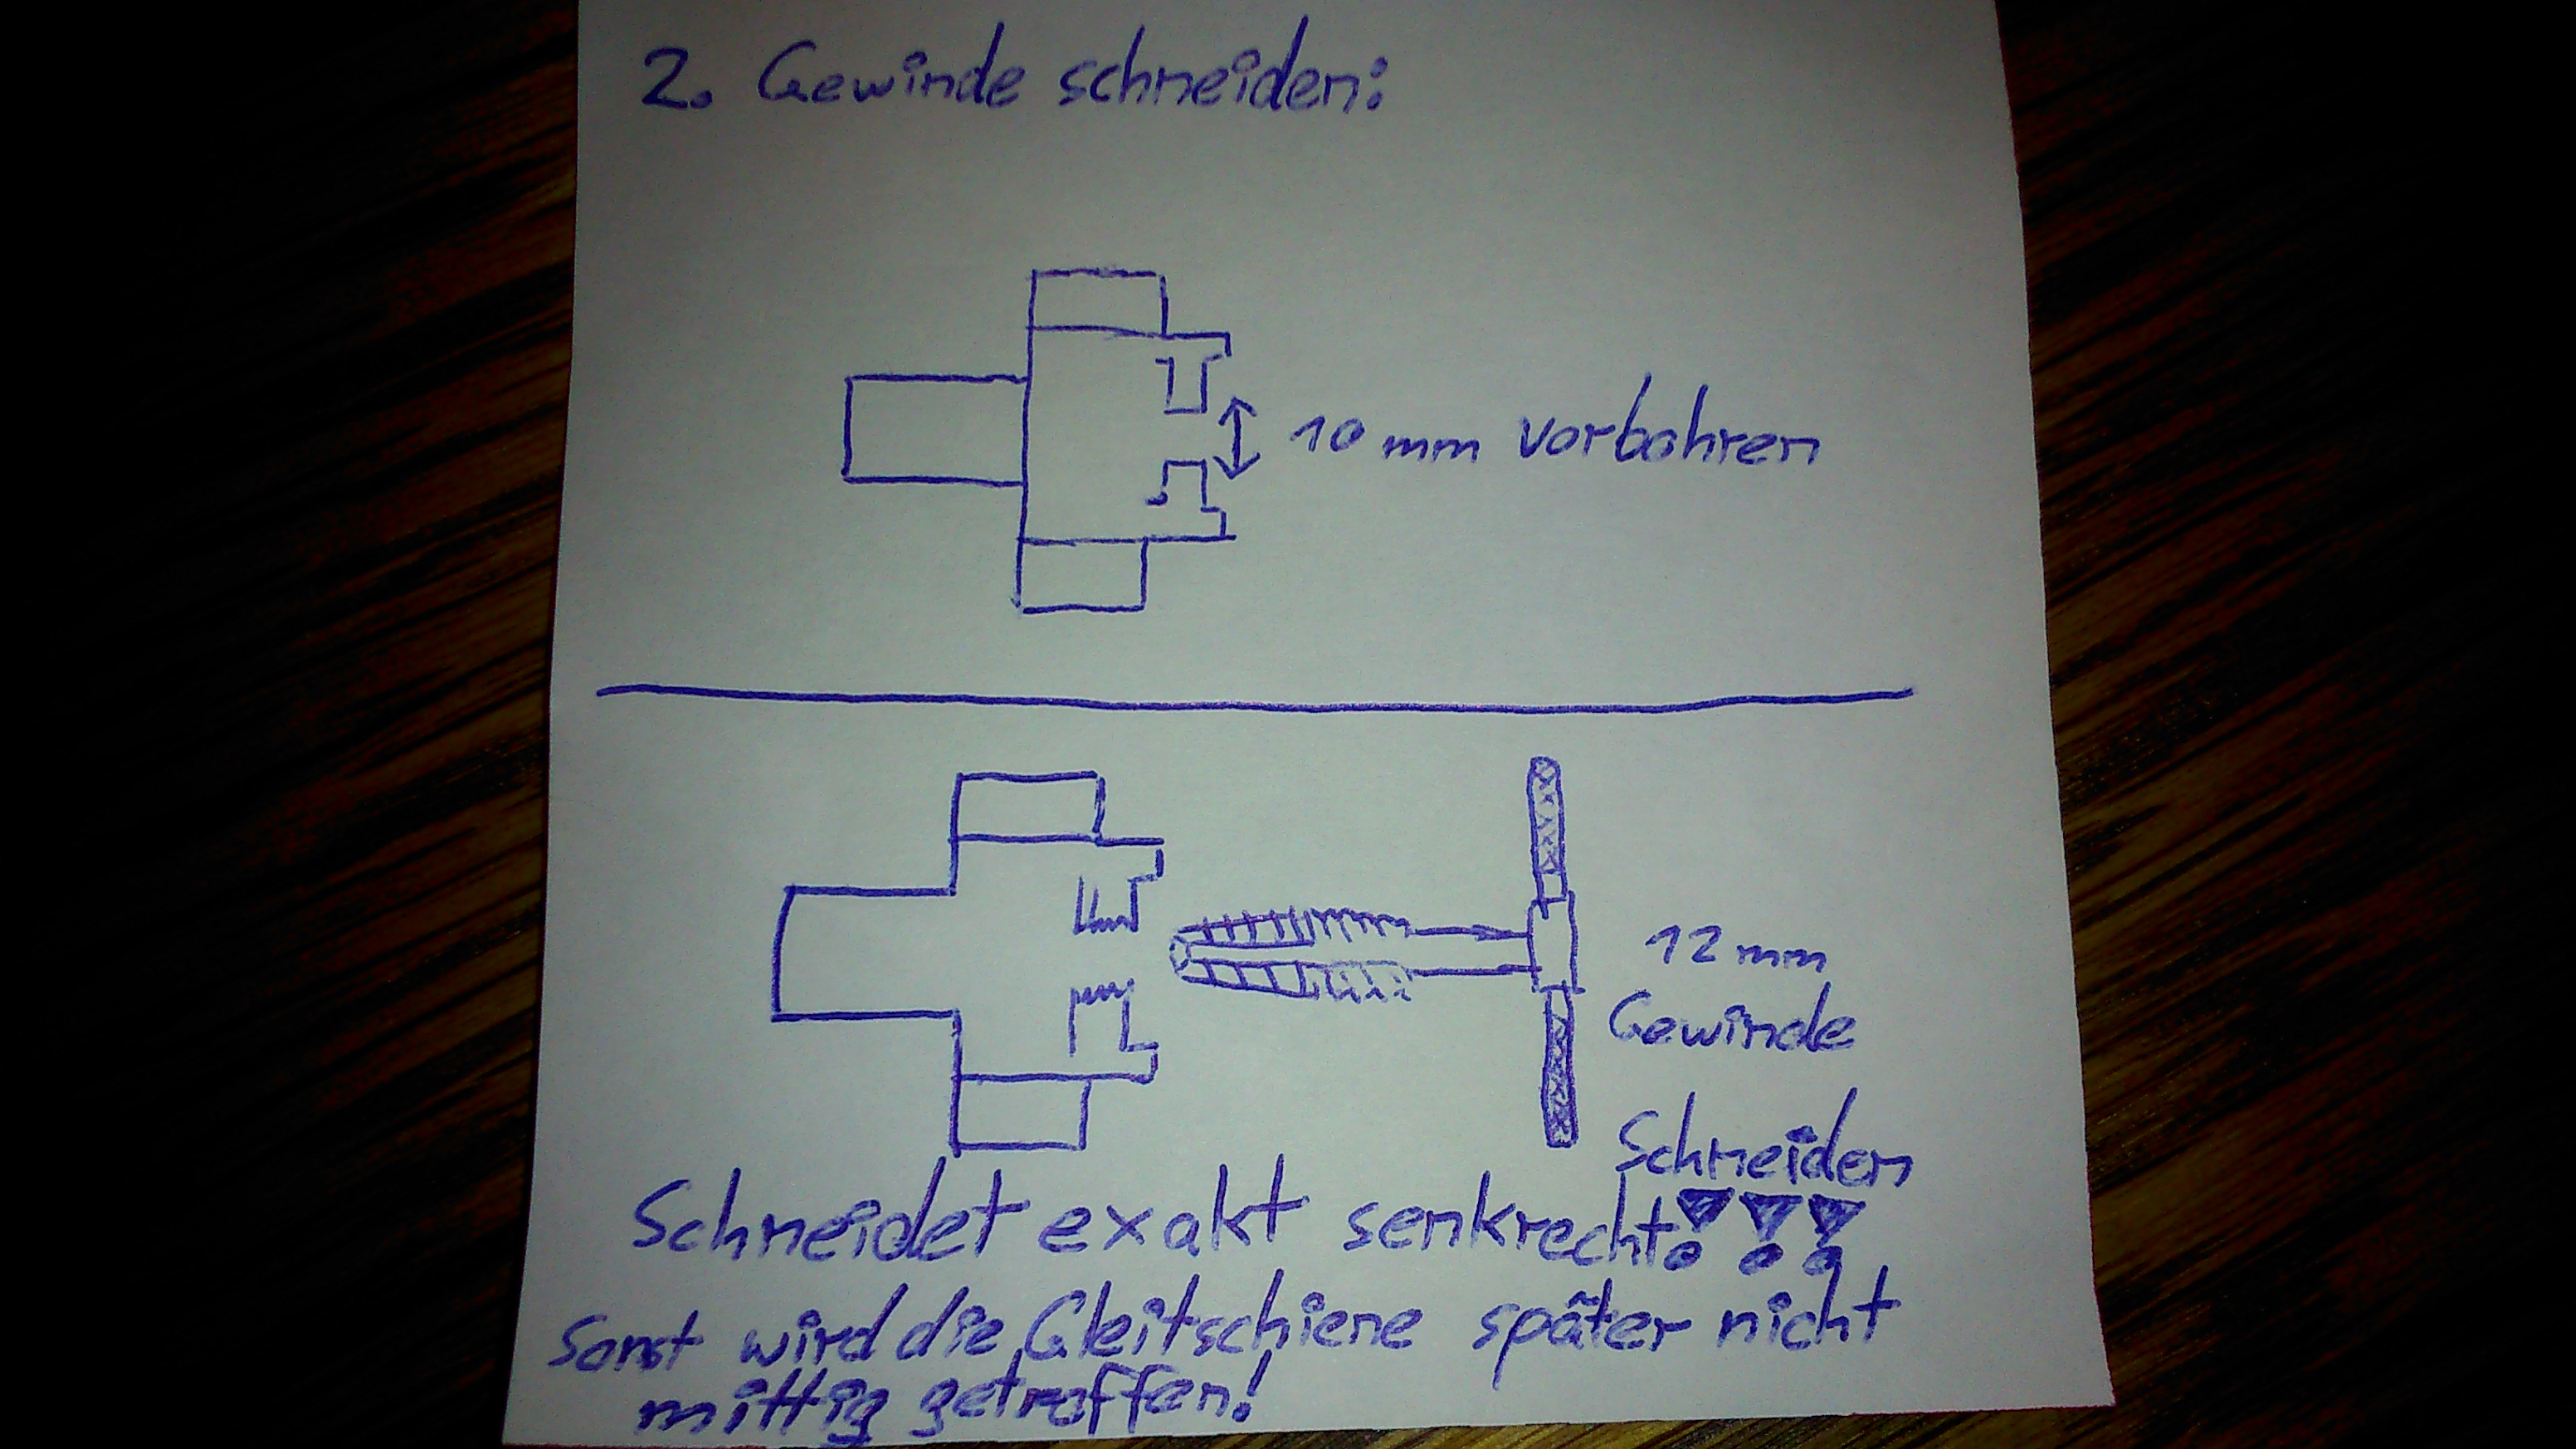 2. Gewinde schneiden:
10 mm vorbohren
12 mm
Gewinde
Schneiden
Schneidet exakt senkrecht!!!
Sonst wird die Gleitschiene später nicht
mittig getroffen!